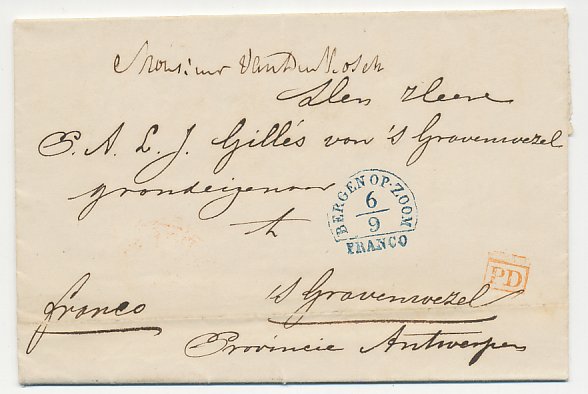 Monsieur VanDenBosch
Den Heere
P. A. L. J. Gillés von 's Gravenwezel
grondeigenaar
te
BERGEN OP-ZOOM
6
9
FRANCO
PD
franco
's Gravenwezel
Provincie Antwerpen